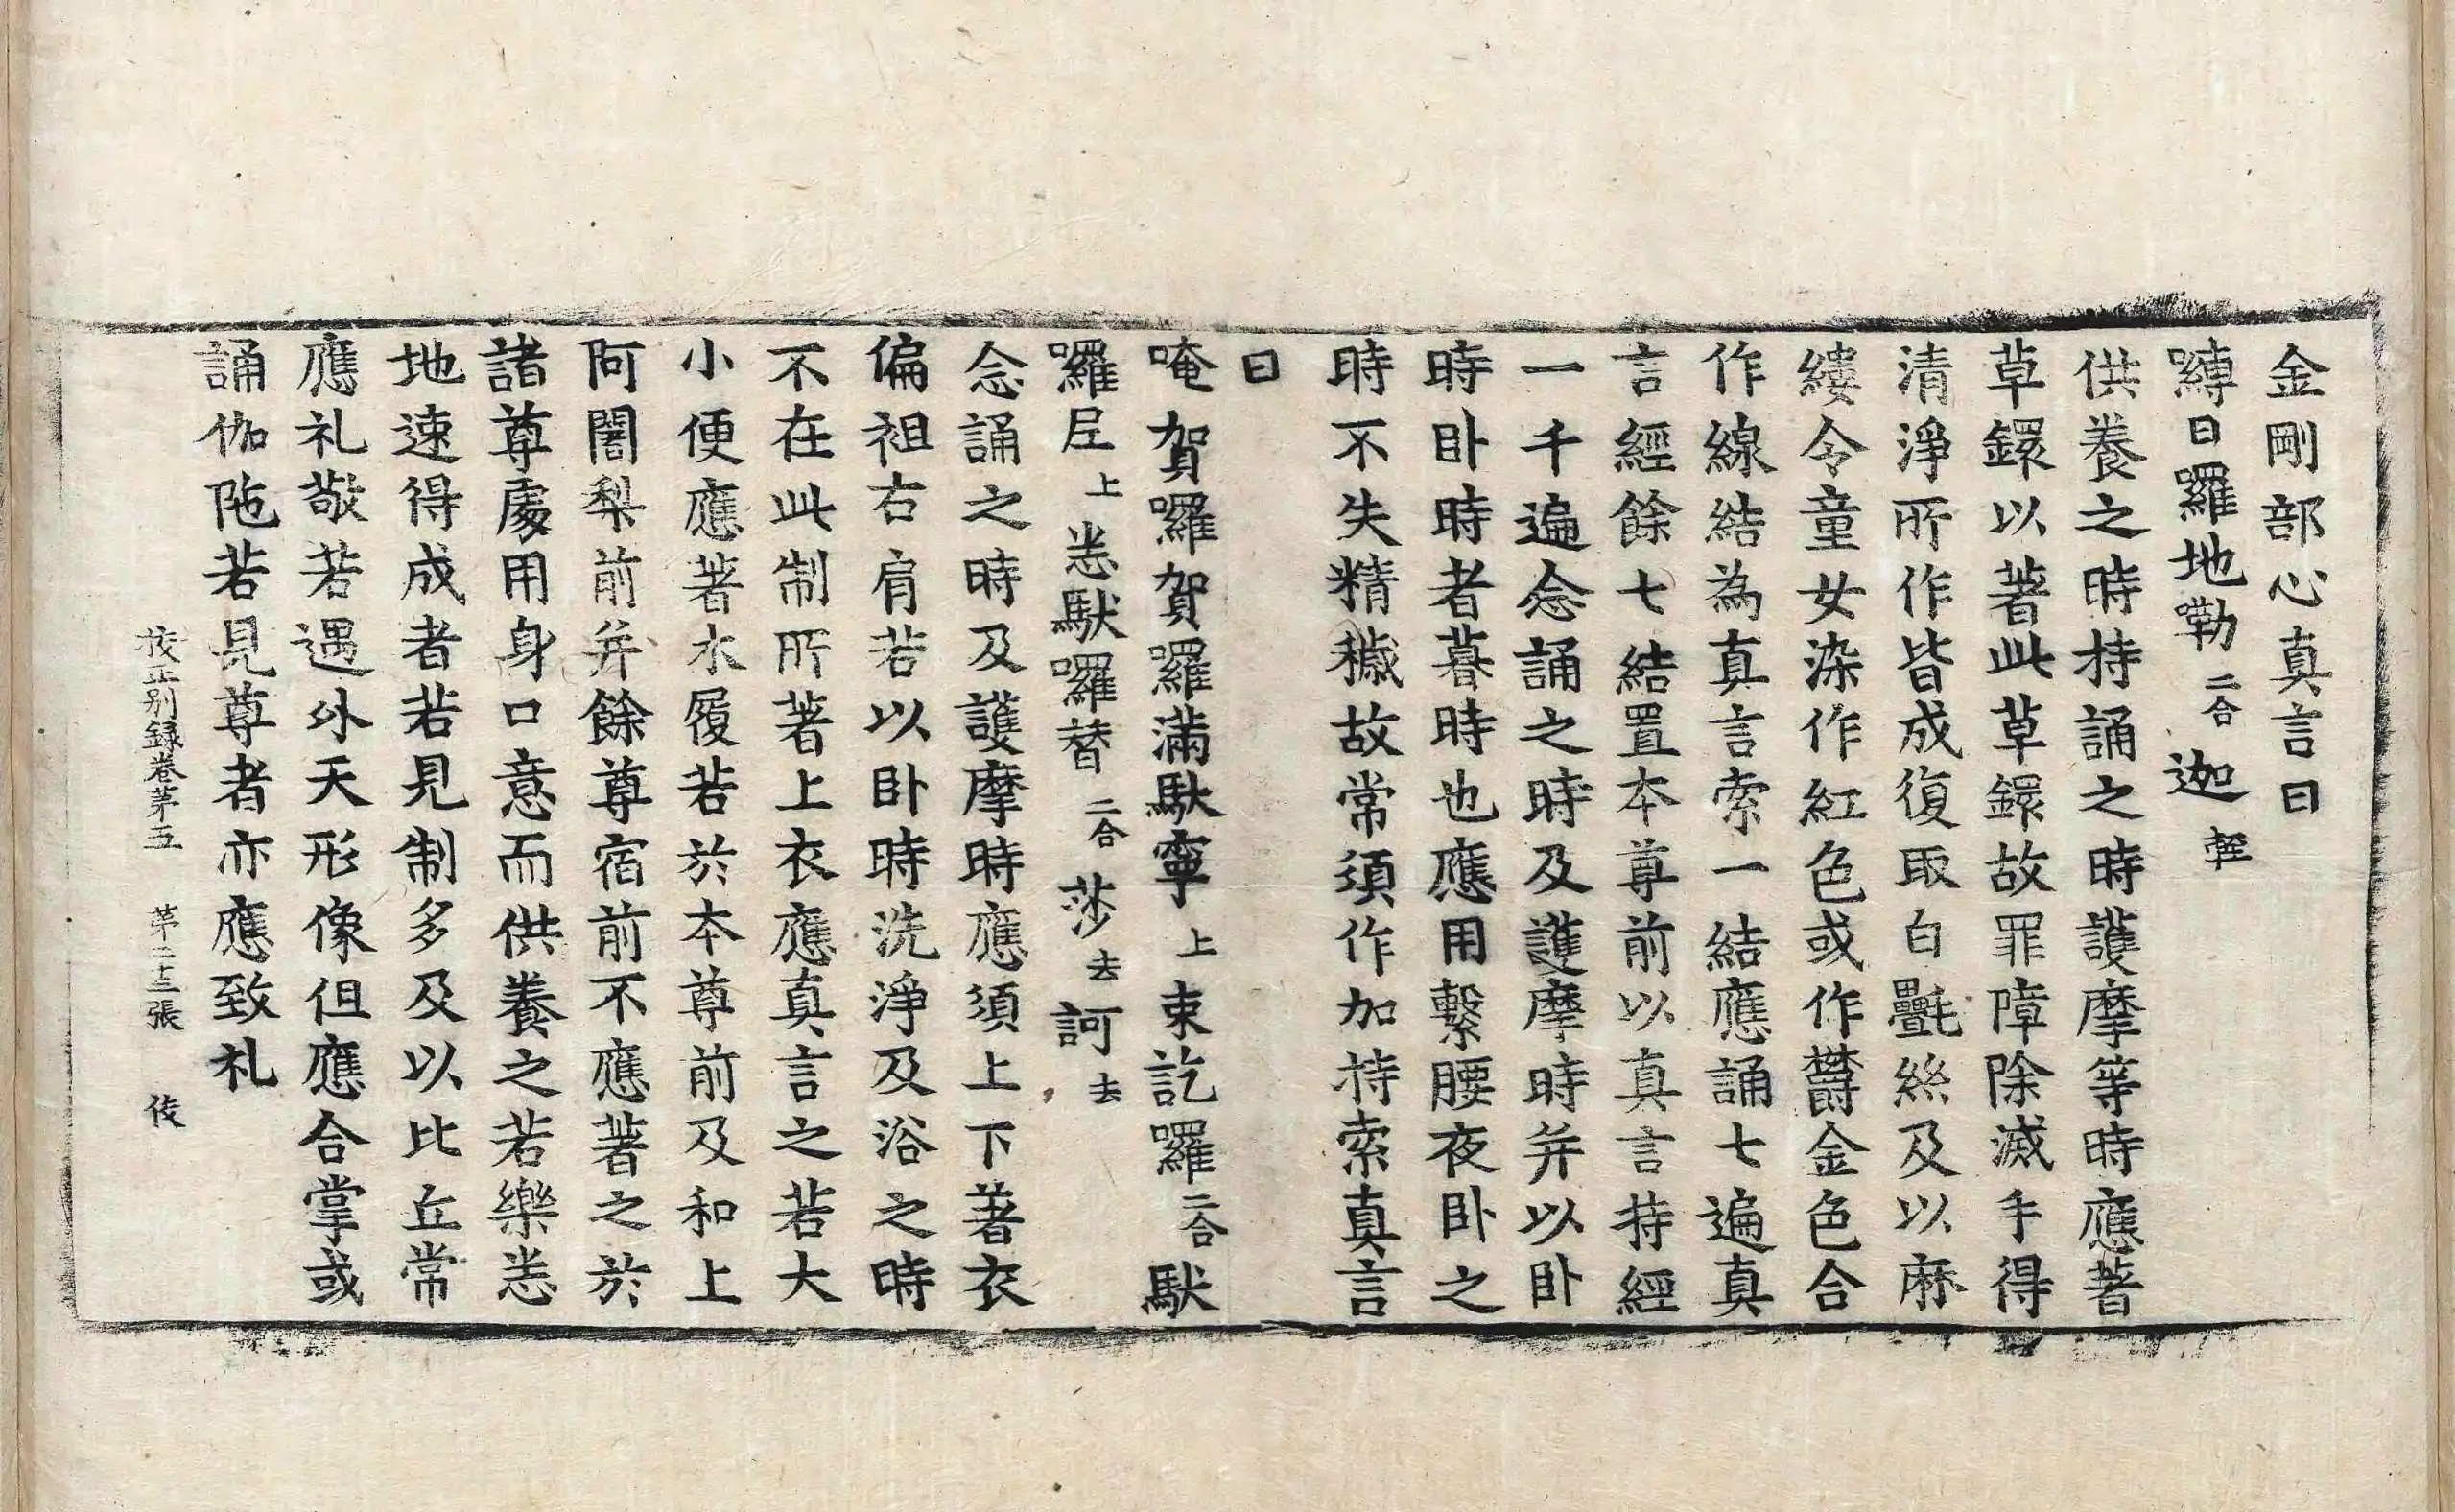 金剛部心真言曰
嚩日囉地勒二合迦輕
供養之時持誦之時護摩等時應著
草鐶以著此草鐶故罪障除滅手得
清淨所作皆成復取白㲲絲及以麻
縷令童女染作紅色或作欝金色合
作線結為真言索一結應誦七遍真
言經餘七結置本尊前以真言持經
一千遍念誦之時及護摩時并以卧
時卧時者暮時也應用繫腰夜卧之
時不失精穢故常須作加持索真言
曰
唵賀囉賀囉滿馱寧上束訖囉二合馱
囉尼上悉馱囉替二合莎去訶去
念誦之時及護摩時應須上下著衣
偏袒右肩若以卧時洗淨及浴之時
不在此制所著上衣應真言之若大
小便應著水履若於本尊前及和上
阿闍梨前并餘尊宿前不應著之於
諸尊處用身口意而供養之若樂悉
地速得成者若見制多及以比丘常
應礼敬若遇外天形像但應合掌或
誦伽陁若見尊者亦應致礼
挍正别録卷苐五 苐二十三張 伎